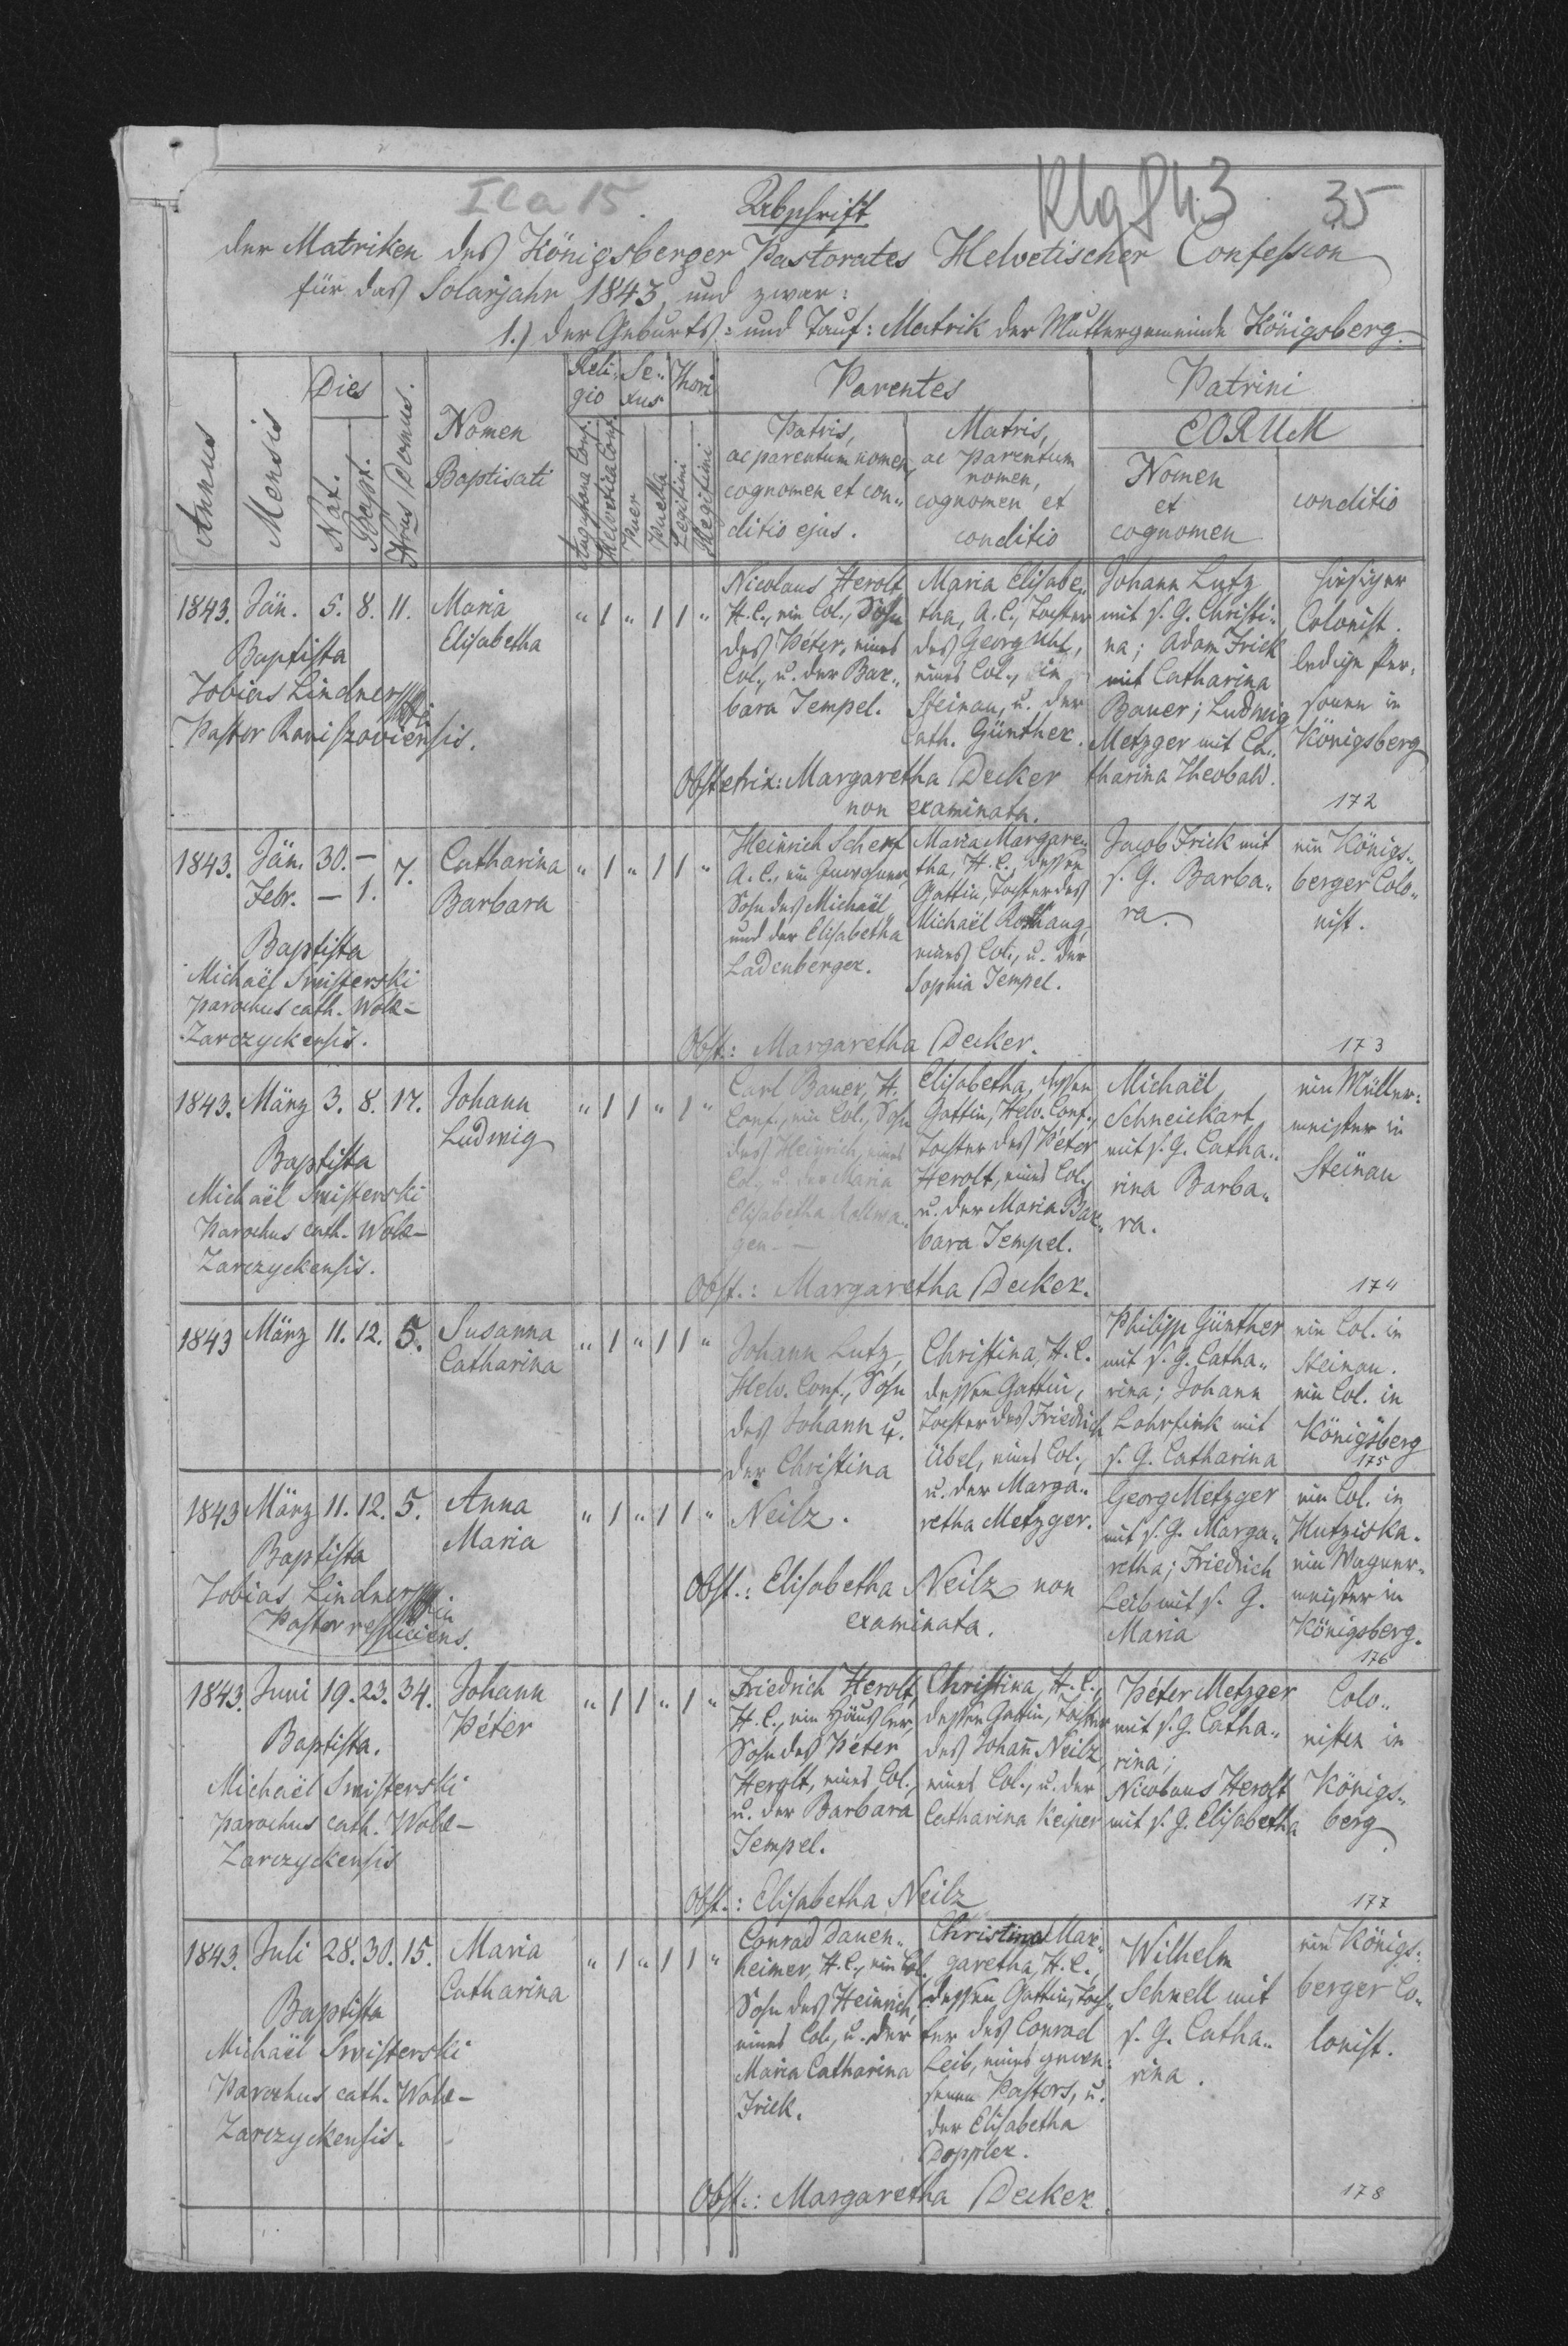 Abschrift
Klg 843 35
der Matriken des Königsberger Pastorates Helvetischer Confession
für das Solarjahr 1843, und zwar:
1.) der Geburts: und Tauf: Matrik der Muttergemeinde Königsberg.
Annus
Mensis
Dies
Nat.
Bapt.
Nrus Domus.
Nomen
Baptisati
Reli-
gio
Augustana Conf.
Helvetica Conf.
Se-
xus
Puer
Puella
Thori
Legitimi
Illegitimi
Parentes
Patris,
ac parentum nomen,
cognomen et con-
ditio ejus.
Matris,
ac Parentum
nomen,
cognomen et
conditio
Patrini
EORUM
Nomen
et
cognomen
conditio
1843. Jän. 5. 8. 11.
Maria
Elisabetha
" 1 " 1 1 "
Baptista
Tobias Lindner
Pastor Ranischoviensis.
Nicolaus Herolt
H.C., ein Col., Sohn
des Péter, eines
Col., u. der Bar-
bara Tempel.
Maria Elisabe-
tha, A.C., Tochter
des Georg Uhl,
eines Col., in
Steinau, u. der
Cath. Günther.
Johann Lutz
mit s. G. Christi-
na; Adam Frick
mit Catharina
Bauer; Ludwig
Metzger mit Ca-
tharina Theobald.
hiesiger
Colonist.
ledige Per-
sonen in
Königsberg
Obstetrix: Margaretha Decker
non examinata.
172
1843. Jän. 30. –
Febr. – 1. 7.
Catharina
Barbara
" 1 " 1 1 "
Baptista
Michaël Smisterski
Parochus cath. Wola-
Zarczyckensis.
Heinrich Scherf
A.C., ein
Sohn des Michaël
und der Elisabetha
Ladenberger.
Maria Margare-
tha, H.C., dessen
Gattin, Tochter des
Michaël Rothaug,
eines Col., u. der
Sophia Tempel.
Jacob Frick mit
s. G. Barba-
ra.
ein Königs-
berger Colo-
nist.
Obst.: Margaretha Decker.
173
1843. März 3. 8. 17.
Johann
Ludwig
" 1 1 " 1 "
Baptista
Michaël Smisterski
Parochus cath. Wola-
Zarczyckensis.
Carl Bauer, H.
Conf., ein Col., Sohn
des Heinrich, eines
Col., u. der Maria
Elisabetha Kallwa-
gen. –
Elisabetha, dessen
Gattin, Helv. Conf.,
Tochter des Péter
Herolt, eines Col.,
u. der Maria Bar-
bara Tempel.
Michaël
Schneickart
mit s. G. Catha-
rina Barba-
ra.
ein Müller-
meister in
Steinau
Obst.: Margaretha Decker.
174
1843 März 11. 12. 5.
Susanna
Catharina
" 1 " 1 1 "
Johann Lutz,
Helv. Conf., Sohn
des Johann u.
der Christina
Neilz.
Christina, H.C.
dessen Gattin,
Tochter des Friedrich
Übel, eines Col.,
u. der Marga-
retha Metzger.
Philipp Günther
mit s. G. Catha-
rina; Johann
Lohrfink mit
s. G. Catharina
ein Col. in
Steinau.
ein Col. in
Königsberg
175
1843 März 11. 12. 5.
Anna
Maria
" 1 " 1 1 "
Baptista
Tobias Lindner
Pastor resficiens.
Georg Metzger
mit s. G. Marga-
retha; Friedrich
Leib mit s. G.
Maria
ein Col. in
Hutziska.
ein Wagner-
meister in
Königsberg.
Obst.: Elisabetha Neilz non
examinata.
176
1843. Juni 19. 23. 34.
Johann
Péter
" 1 1 " 1 "
Baptista.
Michaël Smisterski
Parochus cath. Wola-
Zarczyckensis
Friedrich Herolt,
H.C., ein Häusler,
Sohn des Péter
Herolt, eines Col.,
u. der Barbara
Tempel.
Christina, H.C.,
dessen Gattin, Tochter
des Johann Neilz,
eines Col., u. der
Catharina Keiper
Péter Metzger
mit s. G. Catha-
rina;
Nicolaus Herolt
mit s. G. Elisabetha
Colo-
nisten in
Königs-
berg
Obst.: Elisabetha Neilz
177
1843. Juli 28. 30. 15.
Maria
Catharina
" 1 " 1 1 "
Baptista
Michaël Smisterski
Parochus cath. Wola-
Zarczyckensis.
Conrad Dauen-
heimer, H.C., ein Col.,
Sohn des Heinrich,
eines Col., u. der
Maria Catharina
Frick.
Christina Mar-
garetha, H.C.,
dessen Gattin, Toch-
ter des Conrad
Leib, eines gewe-
senen Pastors, u.
der Elisabetha
Doppler.
Wilhelm
Schnell mit
s. G. Catha-
rina.
ein Königs-
berger Co-
lonist.
Obst.: Margaretha Decker.
178